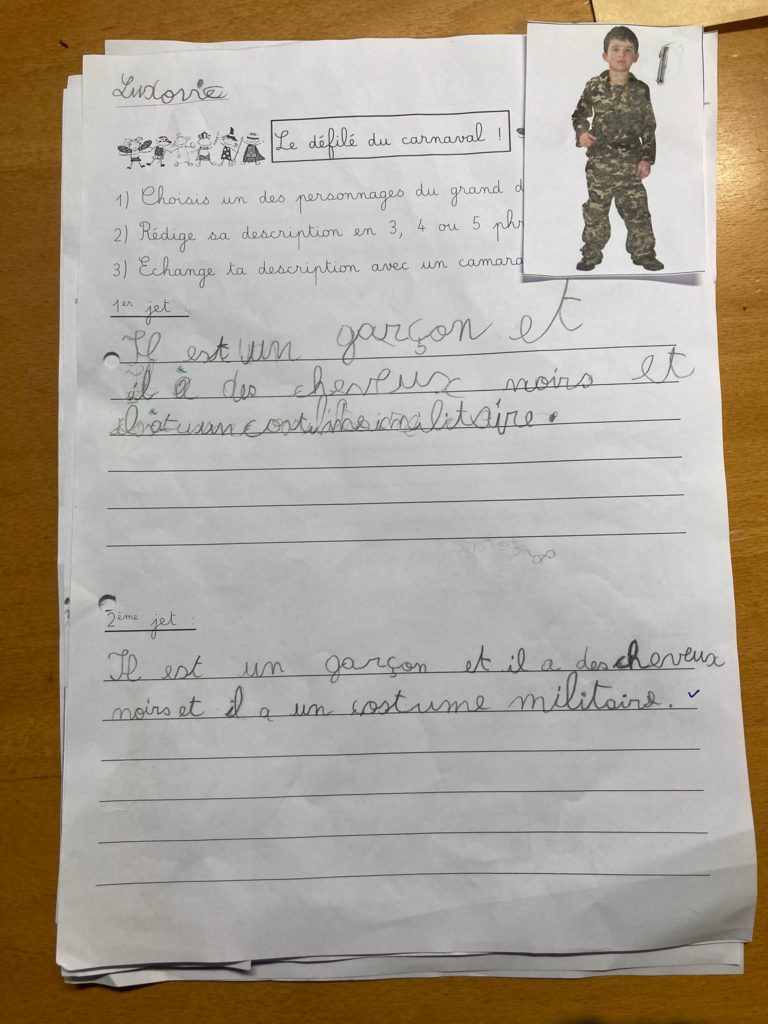 Ludovic
Le défilé du carnaval !
1) Choisis un des personnages du grand d
2) Rédige sa description en 3, 4 ou 5 phr
3) Echange ta description avec un camara
1er jet :
Il est un garçon et
il à des cheveux noirs et
il à un costume militaire.
2ème jet :
Il est un garçon et il a des cheveux
noirs et il a un costume militaire.